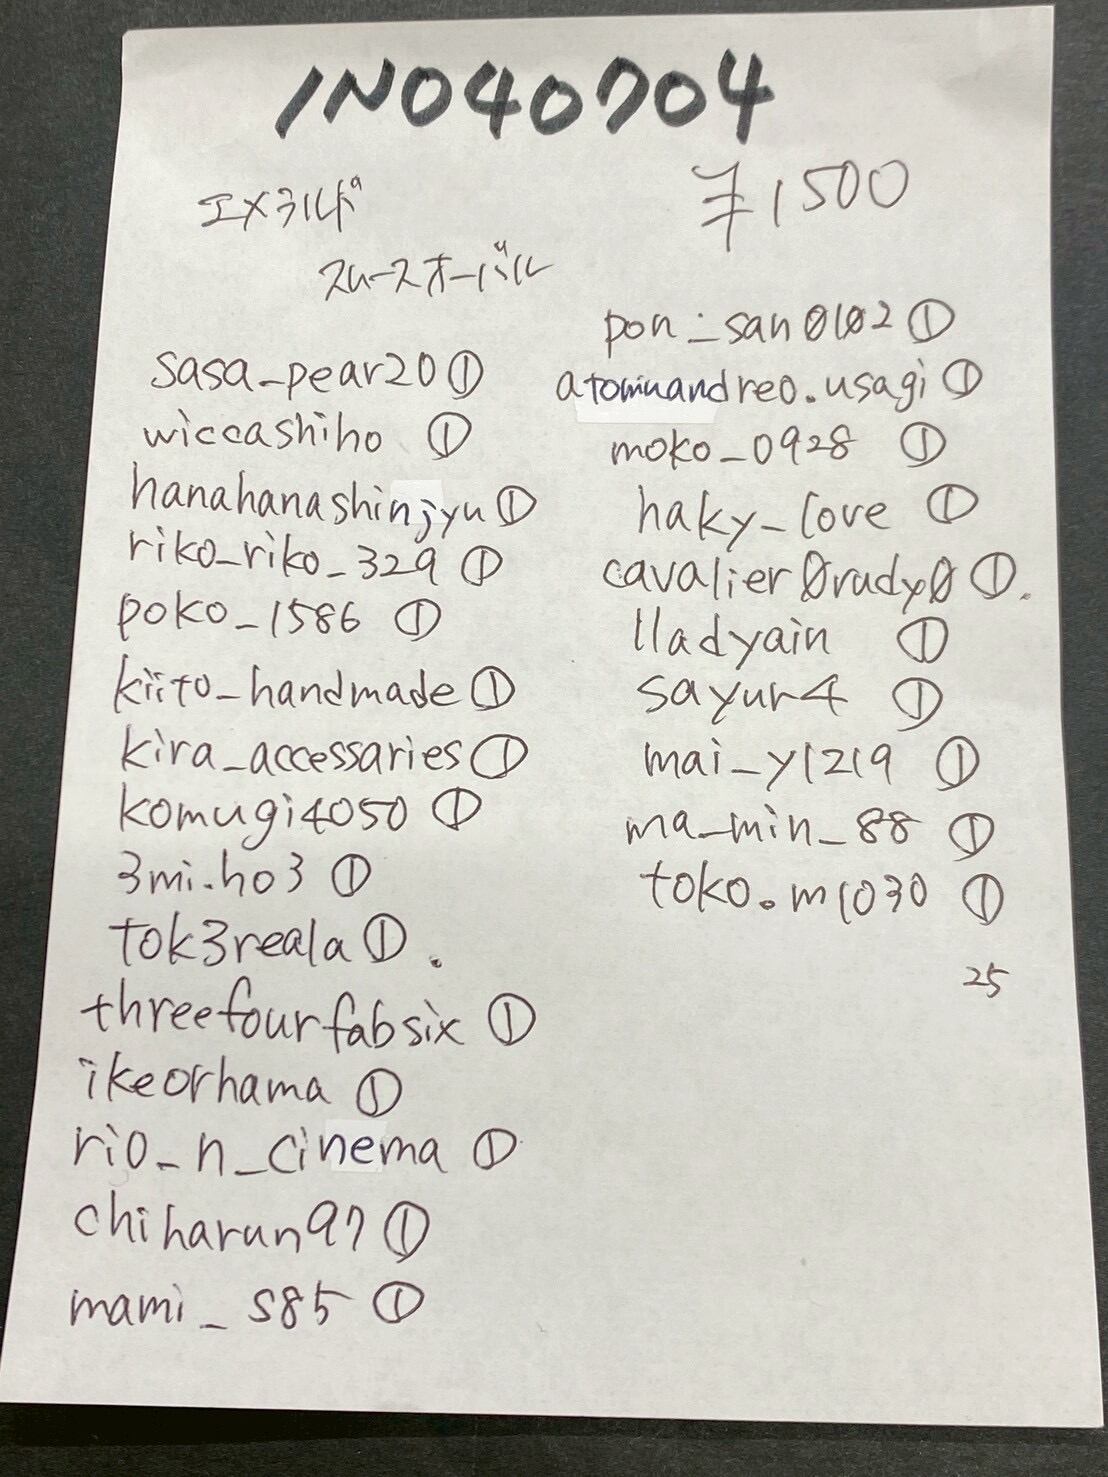 INO40704
エメラルド
¥1500
スムースオーバル
sasa_pear20 ①
wiccashiho ①
hanahanashinjyu ①
riko_riko_329 ①
poko_1586 ①
kiito_handmade ①
kira_accessaries ①
komugi4050 ①
3mi.ho3 ①
tok3reala ①.
threefourfabsix ①
ikeorhama ①
rio_n_cinema ①
chiharun97 ①
mami_s85 ①
pon_san0102 ①
atomuandreo.usagi ①
moko_0928 ①
haky_love ①
cavalier0rady0 ①.
lladyain ①
sayur4 ①
mai_y1219 ①
ma_min_88 ①
toko.m1030 ①
25